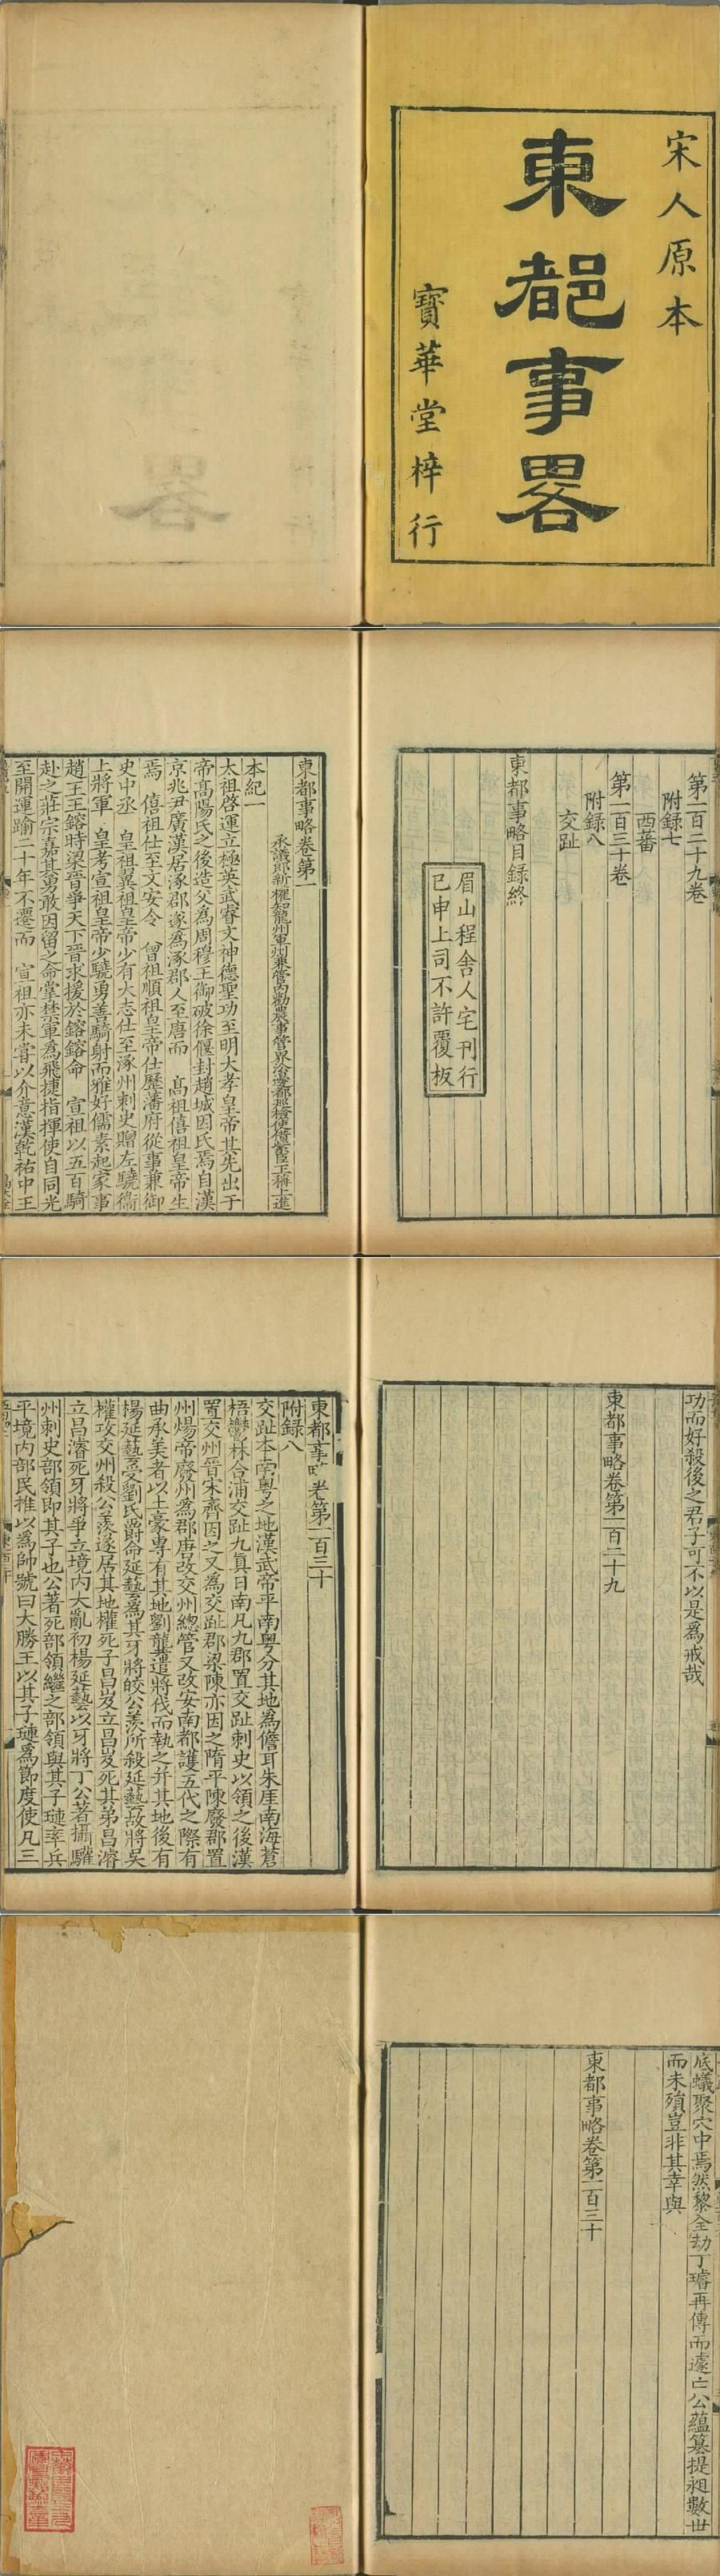 宋人原本
東都事畧
寶華堂梓行
第一百二十九卷
附録七
西蕃
第一百三十卷
附録八
交趾
東都事略目録終
眉山程舍人宅刊行
已申上司不許覆板
東都事略卷第一
承議郎新權知龍州軍州兼管內勸農事管界沿邊都巡檢使借紫臣王稱上進
本紀一
太祖啓運立極英武睿文神德聖功至明大孝皇帝其先出于
帝髙陽氏之後造父為周穆王御破徐偃封趙城因氏焉自漢
京兆尹廣漢居涿郡遂為涿郡人至唐而 髙祖僖祖皇帝生
焉 僖祖仕至文安令 曾祖順祖皇帝仕歷藩府從事兼御
史中丞 皇祖翼祖皇帝少有大志仕至涿州刺史贈左驍衞
上將軍 皇考宣祖皇帝少驍勇善騎射而雅好儒素起家事
趙王王鎔時梁晉爭天下晉求援於鎔鎔命 宣祖以五百騎
赴之莊宗嘉其勇敢因留之命掌禁軍為飛捷指揮使自同光
至開運踰二十年不遷而 宣祖亦未嘗以介意漢乾祐中王
功而好殺後之君子可不以是為戒哉
東都事略卷第一百二十九
東都事 卷第一百三十
附録八
交趾本南粵之地漢武帝平南粵分其地為儋耳朱厓南海蒼
梧鬱林合浦交趾九真日南凡九郡置交趾刺史以領之後漢
置交州晉宋齊因之又為交趾郡梁陳亦因之隋平陳廢郡置
州煬帝廢州為郡唐改交州總管又改安南都護五代之際有
曲承美者以土豪專有其地劉龑遣將伐而執之并其地後有
楊延藝受劉氏爵命延藝為其牙將皎公羨所殺延藝故將吳
權攻交州殺公羨遂居其地權死子昌岌立昌岌死其弟昌濬
立昌濬死牙將爭立境內大亂初楊延藝以牙將丁公著攝驩
州刺史部領即其子也公著死部領繼之部領與其子璉率兵
平境內部民推以為帥號曰大勝王以其子璉為節度使凡三
底蟻聚穴中焉然黎全劫丁璿再傳而遽亡公蘊簒提昶數世
而未殞豈非其幸與
東都事略卷第一百三十